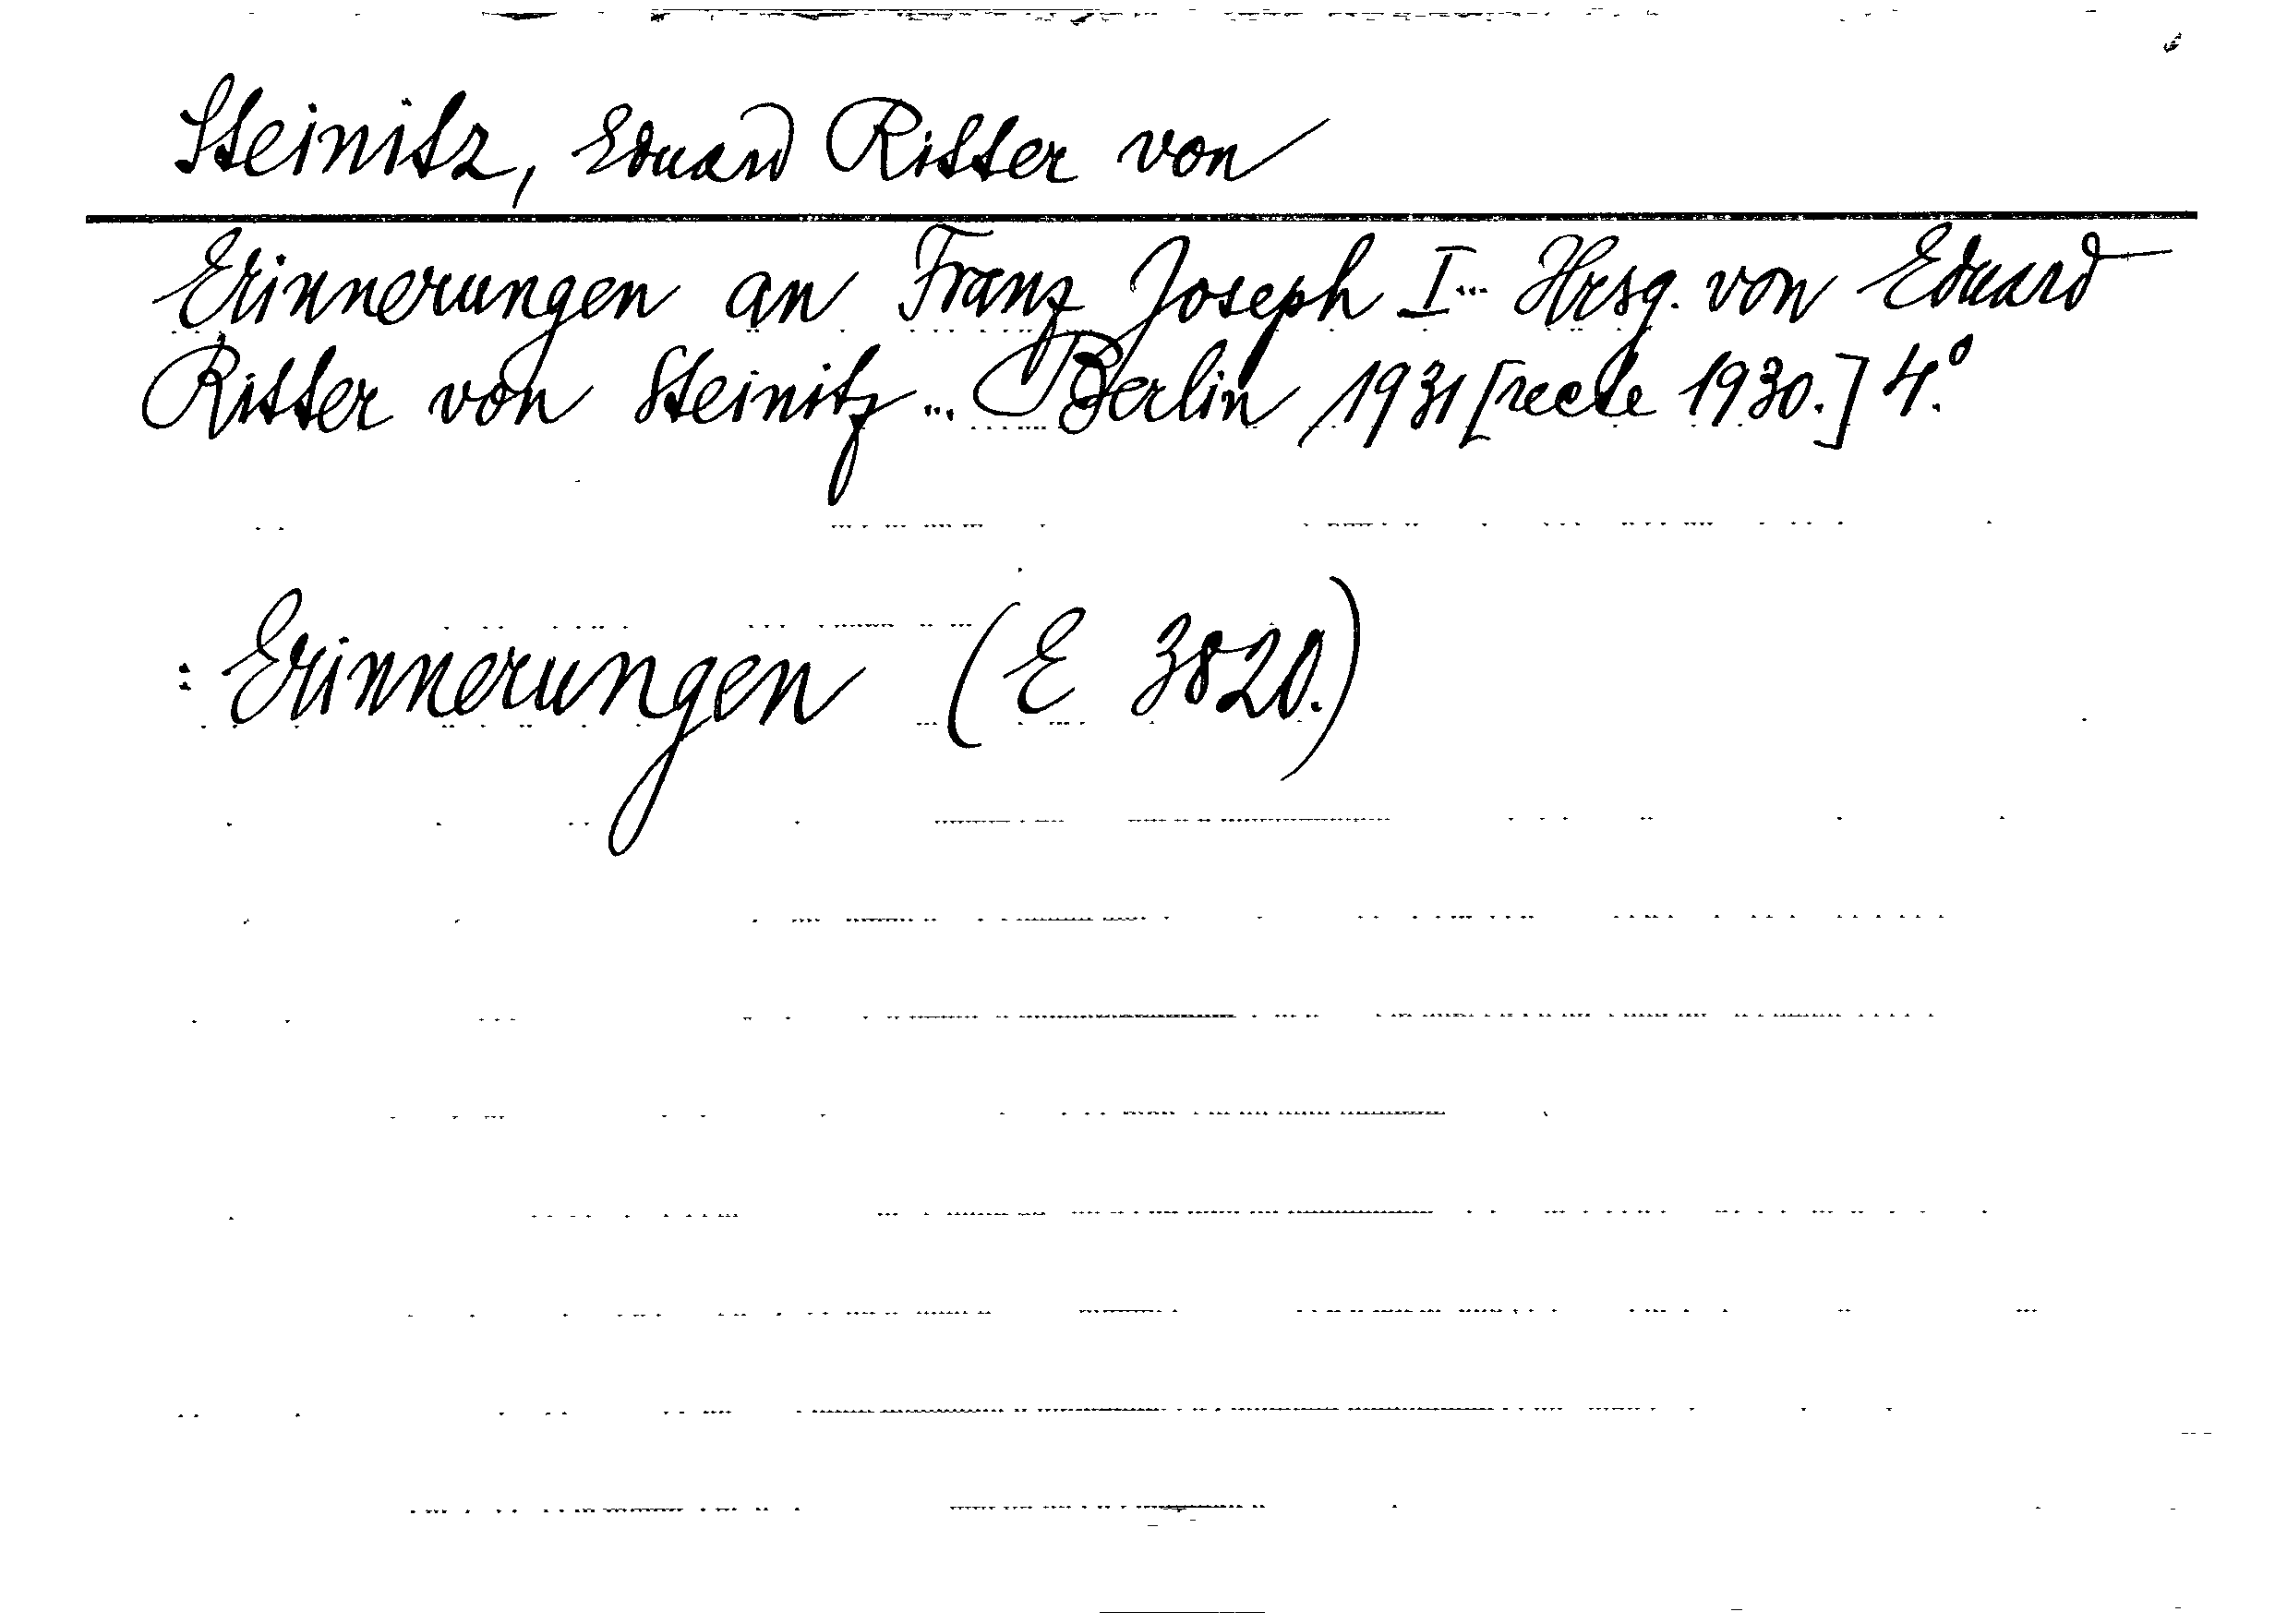 Steinitz, Eduard Ritter von
Erinnerungen an Franz Joseph I... Hrsg. von Eduard
Ritter von Steinitz ... Berlin 1931 [recte 1930.] 4.°
: Erinnerungen (E 3820.)